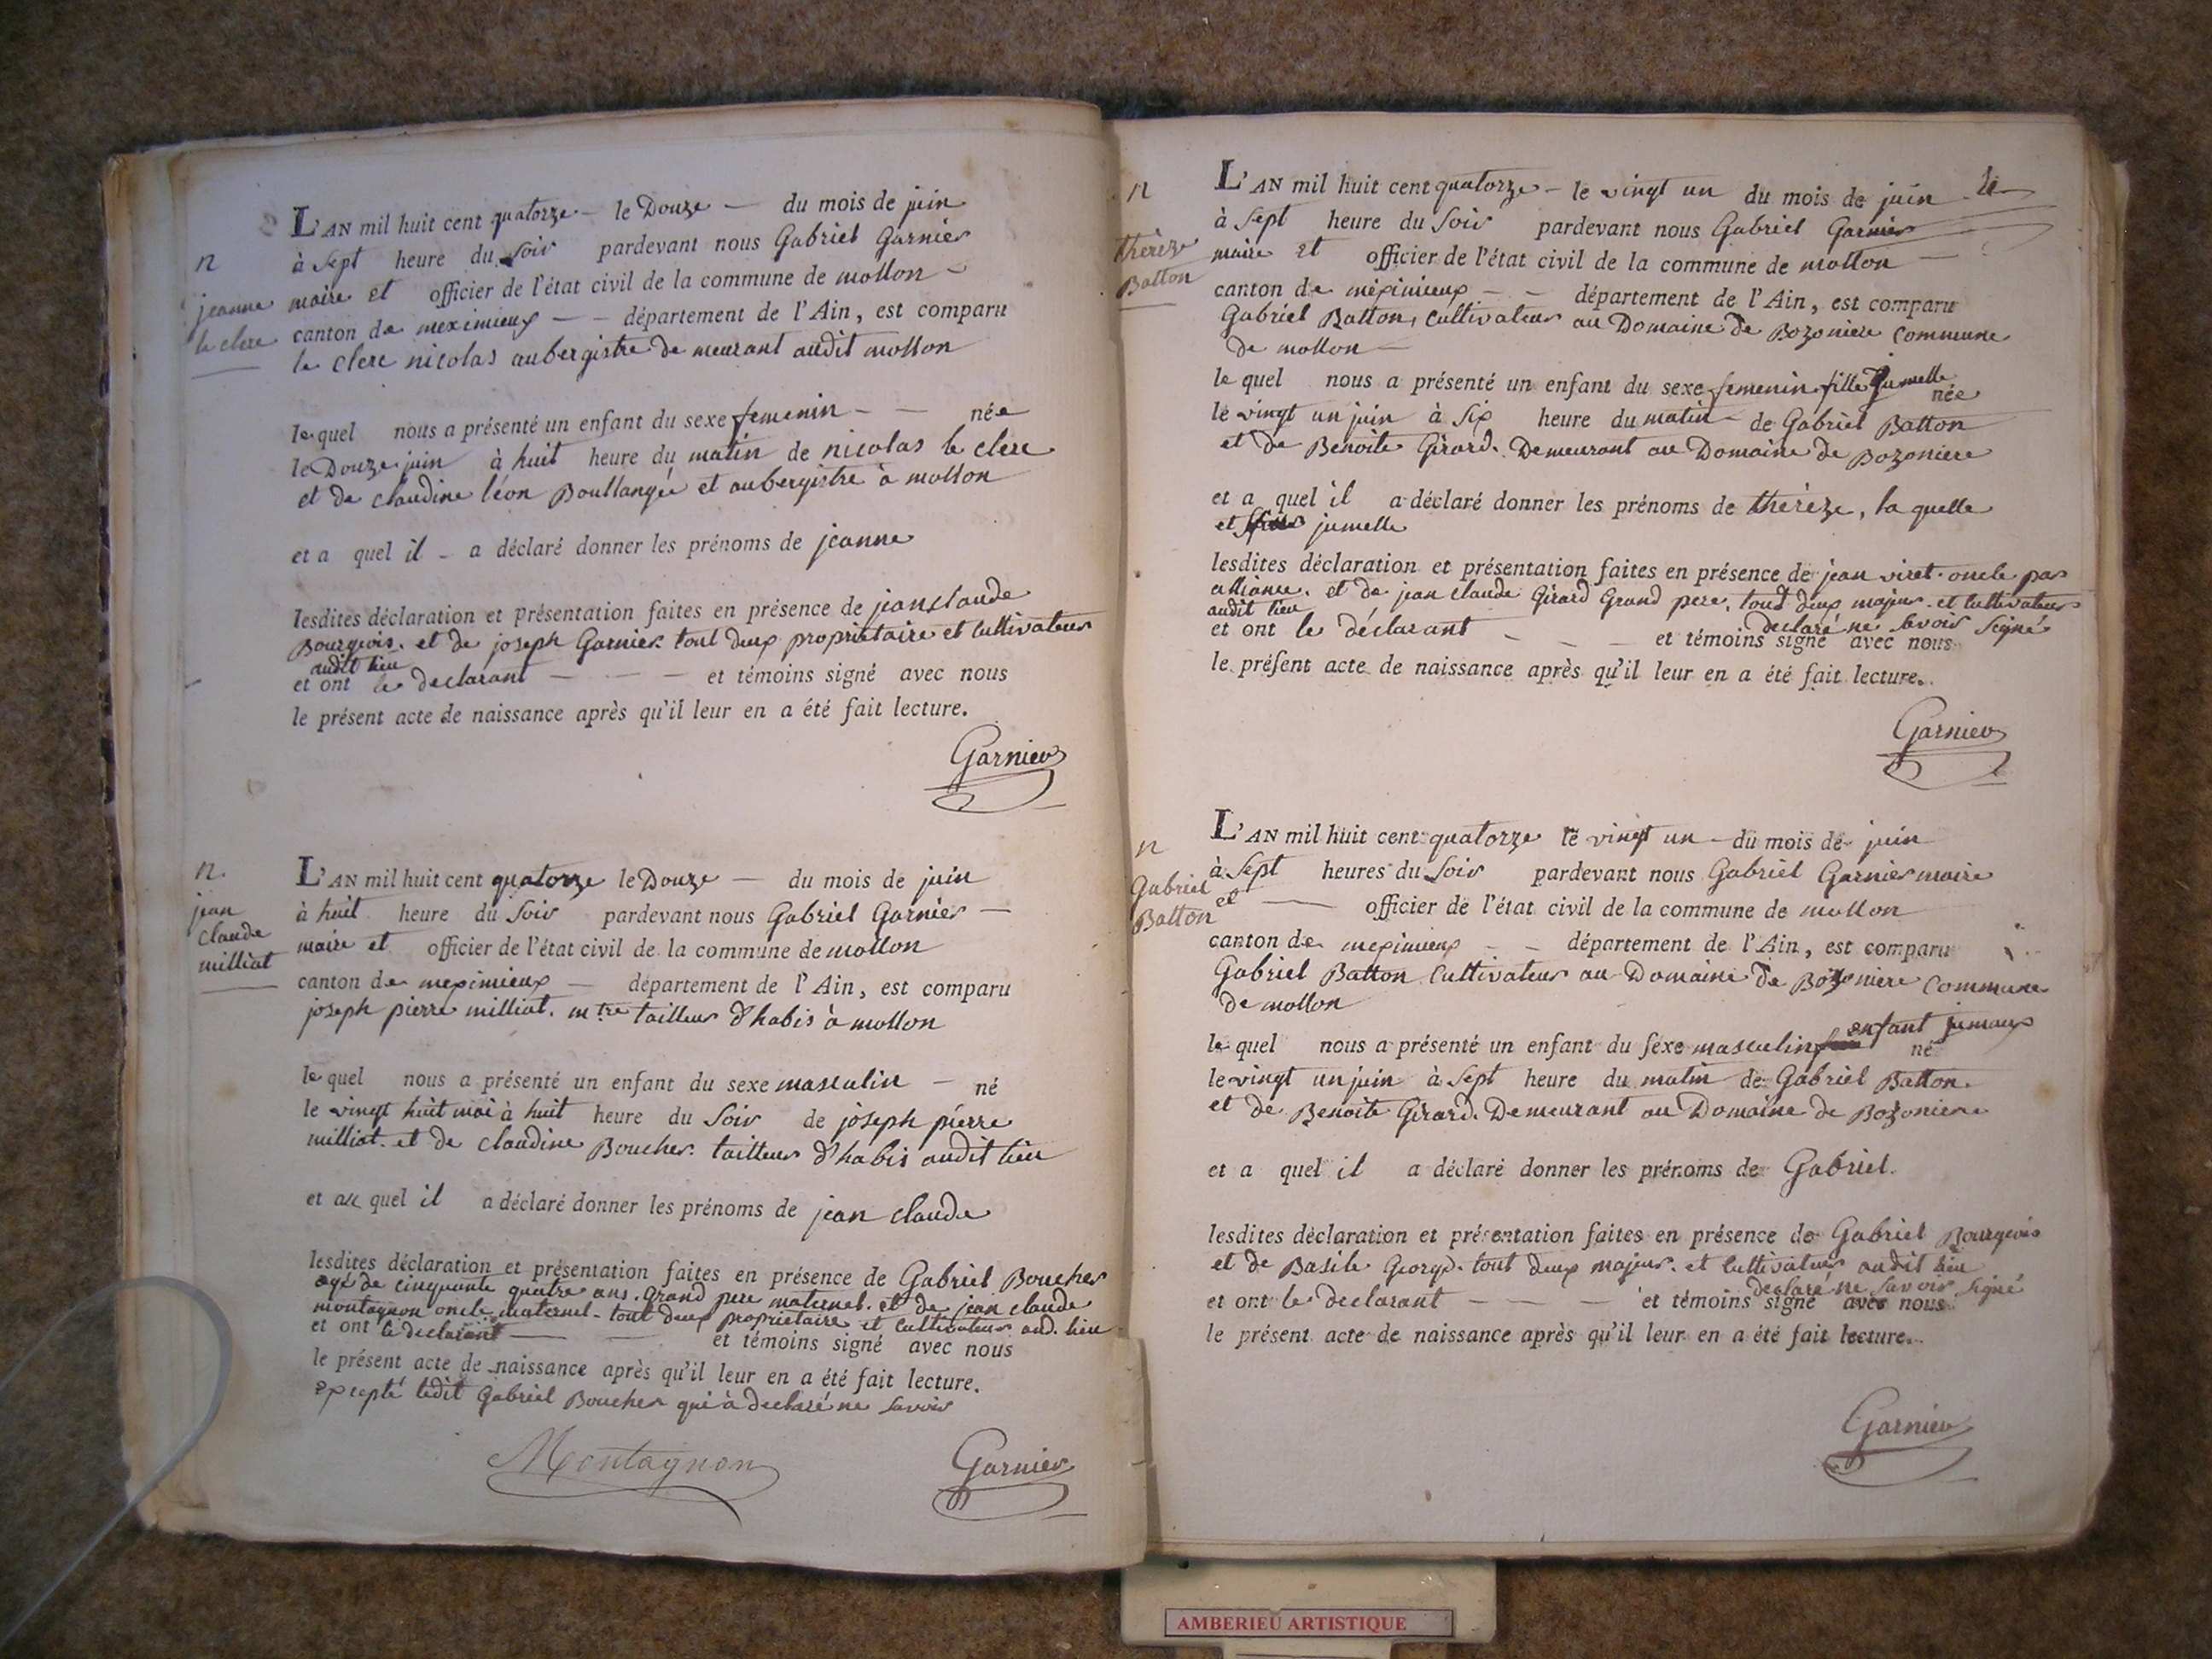 n
jeanne
le clerc
L'AN mil huit cent quatorze - le Douze - du mois de juin
à Sept heure du Soir pardevant nous Gabriel Garnier
maire et officier de l'état civil de la commune de mollon -
canton de meximieux - - département de l'Ain, est comparu
le clerc nicolas aubergistre demeurant audit mollon
le quel nous a présenté un enfant du sexe femenin - - née
le Douze juin à huit heure du matin de nicolas le clerc
et de claudine léon Boullangée et aubergistre à mollon
et a quel il - a déclaré donner les prénoms de jeanne
lesdites déclaration et présentation faites en présence de jean claude
Bourgeois. et de joseph Garnier. tout deux proprietaire et cultivateur
audit lieu
et ont le declarant - - - et témoins signé avec nous
le présent acte de naissance après qu'il leur en a été fait lecture.
Garnier
n
jean
claude
milliat
L'AN mil huit cent quatorze le Douze - du mois de juin
à huit heure du Soir pardevant nous Gabriel Garnier -
maire et officier de l'état civil de la commune de mollon
canton de meximieux - département de l'Ain, est comparu
joseph pierre milliat. mtre tailleur d'habis à mollon
le quel nous a présenté un enfant du sexe masculin - né
le vingt huit mai à huit heure du Soir de joseph pierre
milliat. et de claudine Boucher. tailleur d'habis audit lieu
et au quel il a déclaré donner les prénoms de jean claude
lesdites déclaration et présentation faites en présence de Gabriel Boucher
agé de cinquante quatre ans. grand pere maternel. et de jean claude
montagnon oncle maternel - tout deux proprietaire et cultivateur aud. lieu
et ont le declarant - - et témoins signé avec nous
le présent acte de naissance après qu'il leur en a été fait lecture.
excepté ledit Gabriel Boucher qui à declaré ne savoir
Montagnon Garnier
n
thérèze
Batton
L'AN mil huit cent quatorze - le vingt un du mois de juin
à Sept heure du Soir pardevant nous Gabriel Garnier
maire et officier de l'état civil de la commune de mollon -
canton de meximieux - - département de l'Ain, est comparu
Gabriel Batton, cultivateur au Domaine de Bozoniere commune
de mollon -
le quel nous a présenté un enfant du sexe femenin fille jumelle née
le vingt un juin à Six heure du matin - de Gabriel Batton
et de Benoite Girard. Demeurant au Domaine de Bozoniere
et a quel il a déclaré donner les prénoms de thérèze, la quelle
et jumelle
lesdites déclaration et présentation faites en présence de jean viret. oncle par
alliance. et de jean claude Girard Grand pere. tout deux majeur. et cultivateur
audit lieu declaré ne savoir signé
et ont le déclarant - - - et témoins signé avec nous
le présent acte de naissance après qu'il leur en a été fait lecture.
Garnier
n
Gabriel
Batton
L'AN mil huit cent quatorze le vingt un - du mois de juin
à Sept heures du Soir pardevant nous Gabriel Garnier maire
et - officier de l'état civil de la commune de mollon
canton de meximieux - - département de l'Ain, est comparu
Gabriel Batton cultivateur au Domaine de Bozoniere commune
de mollon
le quel nous a présenté un enfant du sexe masculin enfant jumaux né
le vingt un juin à Sept heure du matin de Gabriel Batton.
et de Benoite Girard. Demeurant au Domaine de Bozoniere
et a quel il a déclaré donner les prénoms de Gabriel.
lesdites déclaration et présentation faites en présence de Gabriel Bourgeois
et de Basile George. tout deux majeur. et cultivateur audit lieu
declaré ne savoir signé
et ont le declarant - - - et témoins signé avec nous
le présent acte de naissance après qu'il leur en a été fait lecture.
Garnier
AMBERIEU ARTISTIQUE